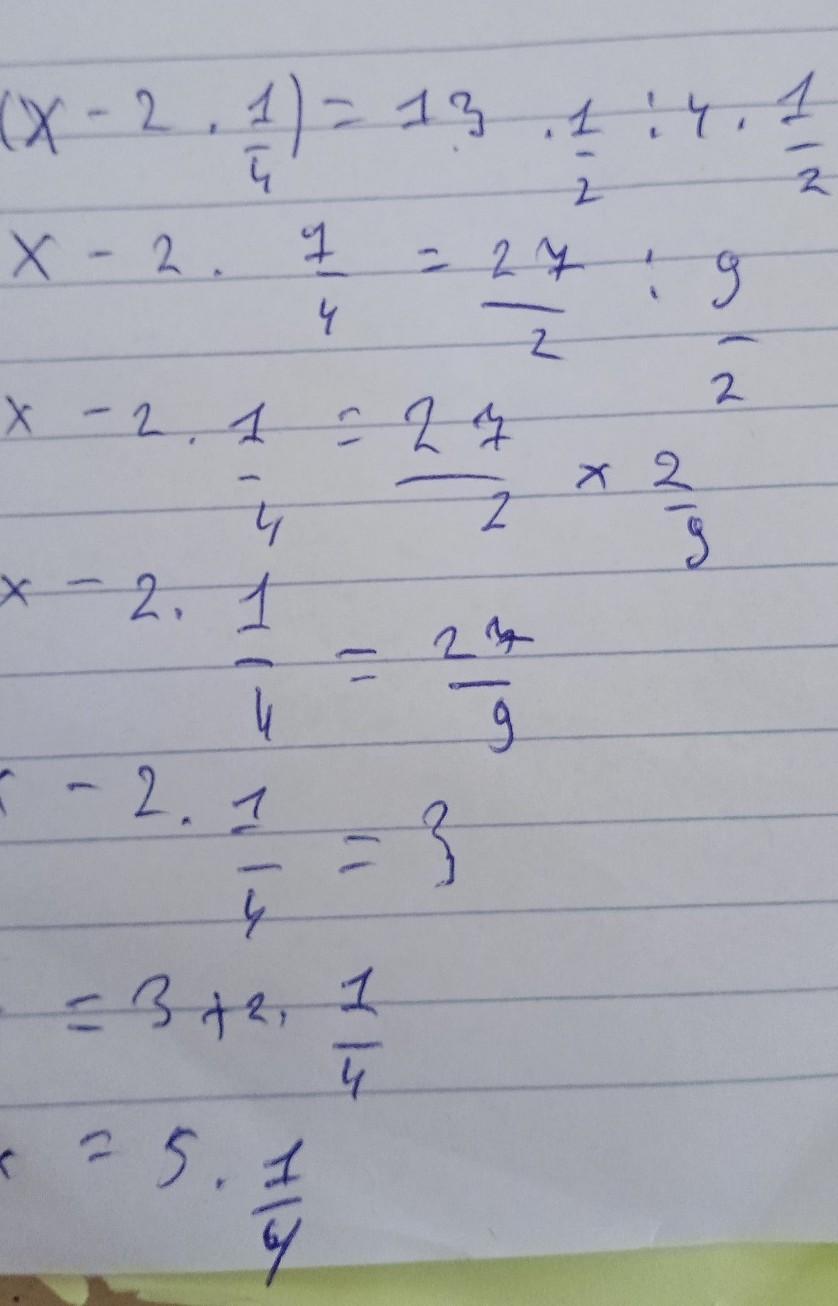 (x - 2 . 1/4) = 13 . 1/2 : 4 . 1/2
x - 2 . 1/4 = 27/2 : 9/2
x - 2 . 1/4 = 27/2 × 2/9
x - 2 . 1/4 = 27/9
x - 2 . 1/4 = 3
= 3 + 2 . 1/4
x = 5 . 1/4